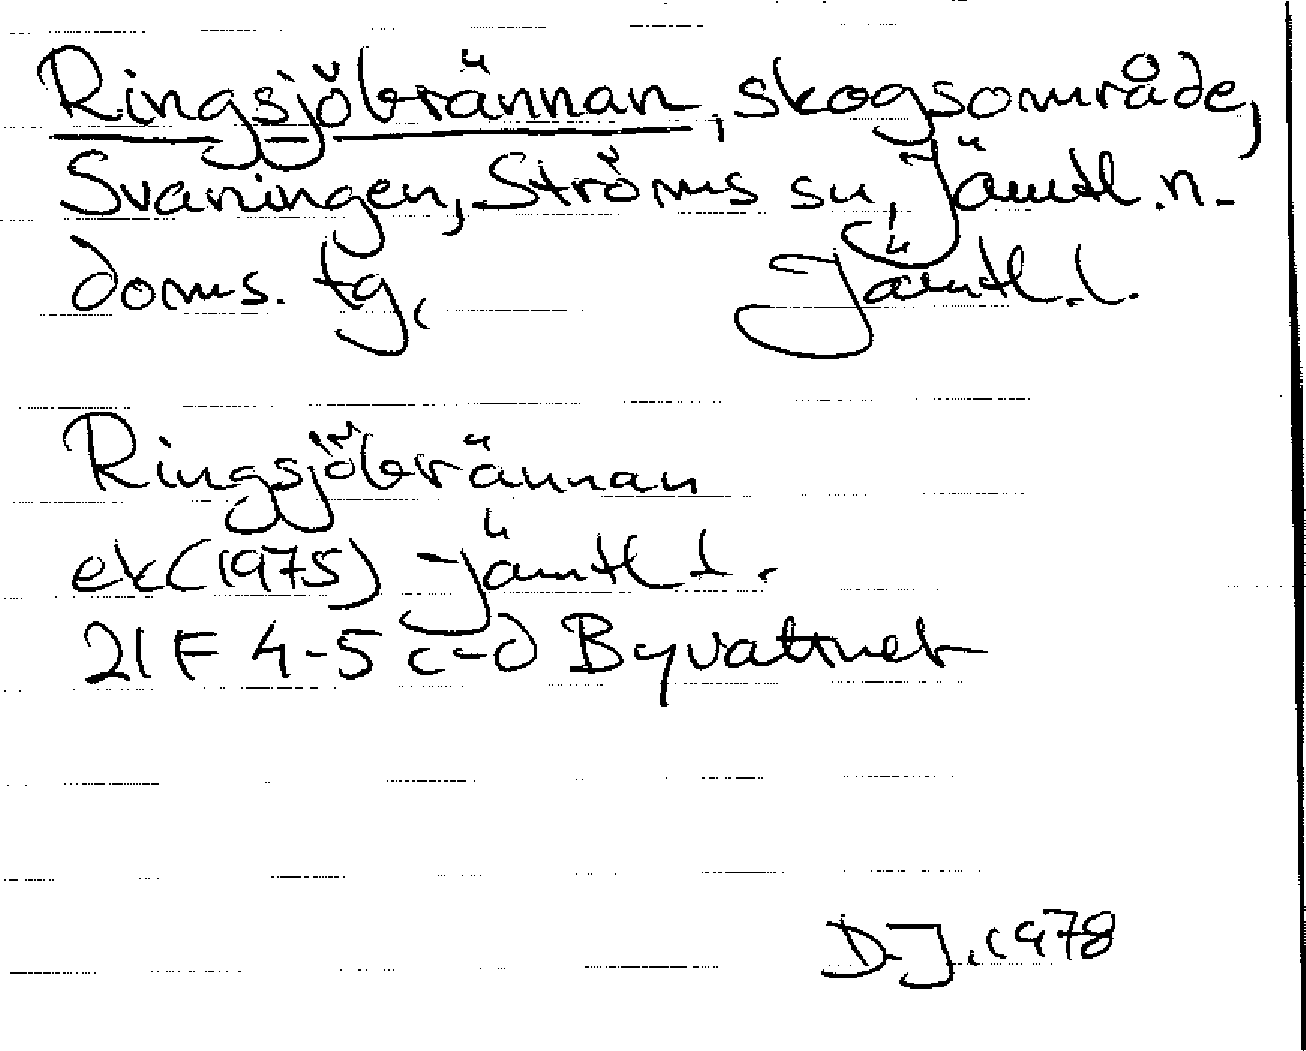 Ringsjöbrännan, skogsområde,
Svaningen, Ströms sn, Jämtl. n.
doms. tg, Jämtl. l.
Ringsjöbrännan
ek (1975) Jämtl l.
21 F 4-5 c-d Byvattnet
D.J. 1978